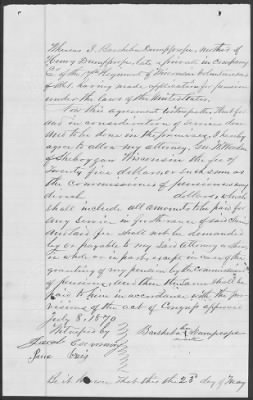 Whereas I, Barsheba Dumpprope, mother of
Henry Dumpprope, late a private in Company
"E" of the 9th Regiment of Wisconsin Volunteers
of 1861, having made application for pension
under the laws of the United States.
Now this agreement witnesseth, that for
and in consideration of services done
and to be done in the premises, I hereby
agree to allow my attorney, Geo. W. Weeden
of Sheboygan Wisconsin the fee of
twenty five dollars or such sum as
the commissioner of pensions may
direct dollars, which
shall include all amounts to be paid for
any service in furtherance of said claim
and said fee shall not be demanded
by or payable to my said Attorney
in whole or in part, except in case of the
granting of my pension by the Commissioner
of pensions, and then the same shall be
paid to him in accordance with the pro-
visions of the act of Congress approved
July 8, 1870
Witnessed by Barsheba Dumpprope
Jacob
Be it known that this the 23d day of May